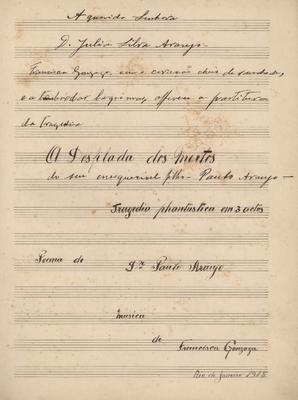 A querida Senhora
D. Julia Silva Araujo.
Francisca Gonzaga, com o coração cheio de saudades,
e a transbordar lagrimas, offerece a partitura
da Tragedia
A Desfilada dos Mortos
do seu inesquecivel filho - Paulo Araujo -
Tragedia phantastica em 3 actos
Poema do Dr. Paulo Araujo
Musica
de
Francisca Gonzaga
Rio de Janeiro